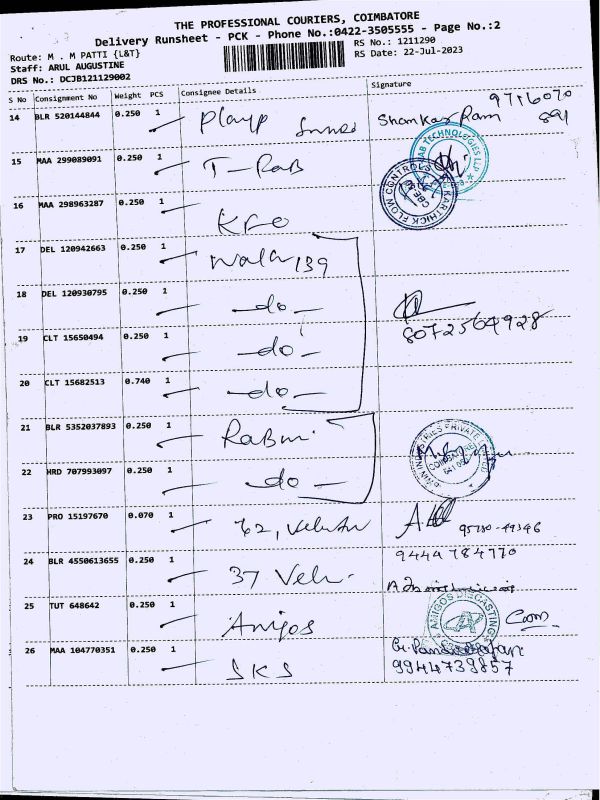 THE PROFESSIONAL COURIERS, COIMBATORE
Delivery Runsheet - PCK - Phone No.:0422-3505555 - Page No.:2
Route: M . M PATTI {L&T}
RS No.: 1211290
Staff: ARUL AUGUSTINE
RS Date: 22-Jul-2023
DRS No.: DCJB121129002
S No Consignment No Weight PCS Consignee Details Signature
14 BLR 520144844 0.250 1 Shankar Ram 9716070
891
15 MAA 299089091 0.250 1 T-RAB
AB TECHNOLOGIES LLP
16 MAA 298963287 0.250 1 KFO
KARTHICK FLOW CONTROLS
17 DEL 120942663 0.250 1 139
18 DEL 120930795 0.250 1 -do-
8072564928
19 CLT 15650494 0.250 1 -do-
20 CLT 15682513 0.740 1 -do-
21 BLR 5352037893 0.250 1
INDUSTRIES PRIVATE LIMITED
COIMBATORE
22 HRD 707993097 0.250 1 -do-
23 PRO 15197670 0.070 1 62, 95780-49346
24 BLR 4550613655 0.250 1 37 Veh. 9449784770
25 TUT 648642 0.250 1 Amigos
AMIGOS DIECASTING
26 MAA 104770351 0.250 1 SKS
9944739857